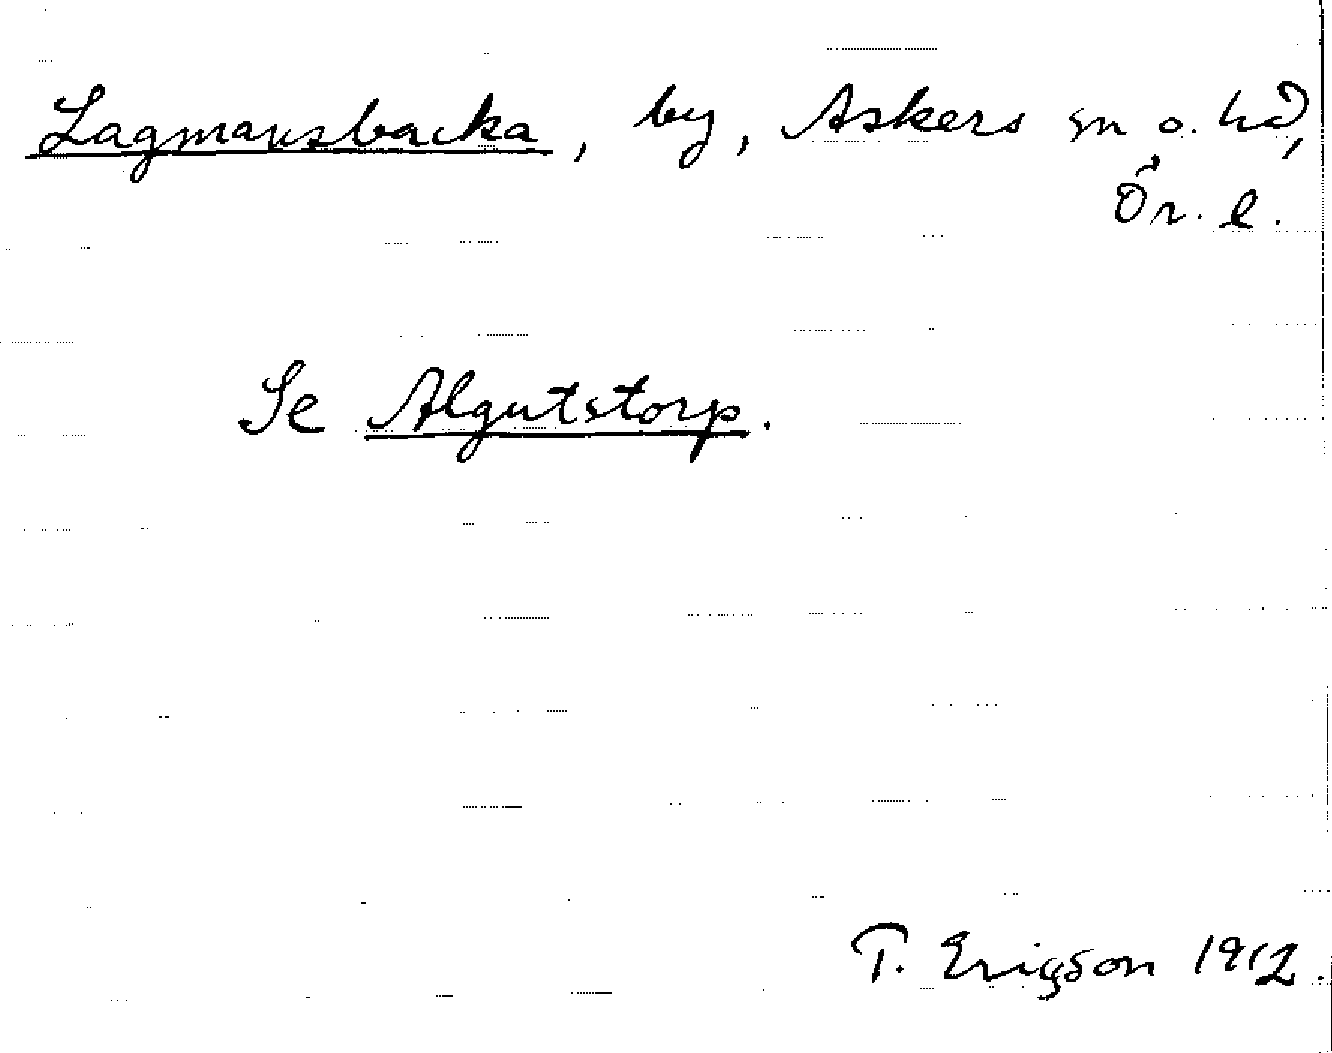 Lagmansbacka, by, Askers sn o. hd,
Ör. l.
Se Algutstorp.
T. Ericson 1912.